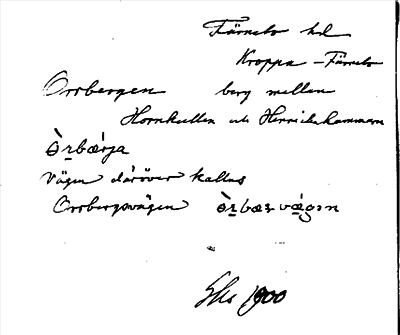 Färnebo hd
Kroppa – Färnebo
Orrbergen berg mellan
Hornkullen och Henrikshammaren
Òrbærja
Vägen däröver kallas
Orrbergsvägen Òrbærvägən
1900